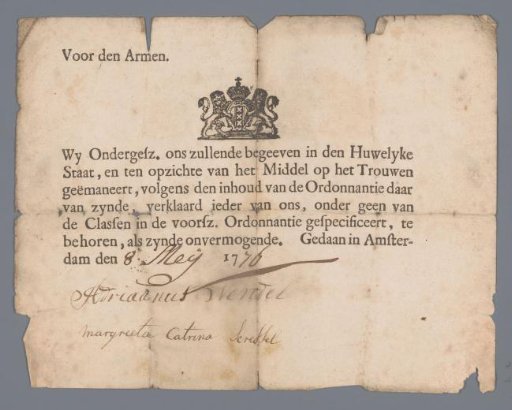 Voor den Armen.
Wy Ondergesz. ons zullende begeeven in den Huwelyke
Staat, en ten opzichte van het Middel op het Trouwen
geëmaneert, volgens den inhoud van de Ordonnantie daar
van zynde, verklaard ieder van ons, onder geen van
de Classen in de voorsz. Ordonnantie gespecificeert, te
behoren, als zynde onvermogende. Gedaan in Amster-
dam den 8 Meij 1776
Adriaanus
margreeta Catrina